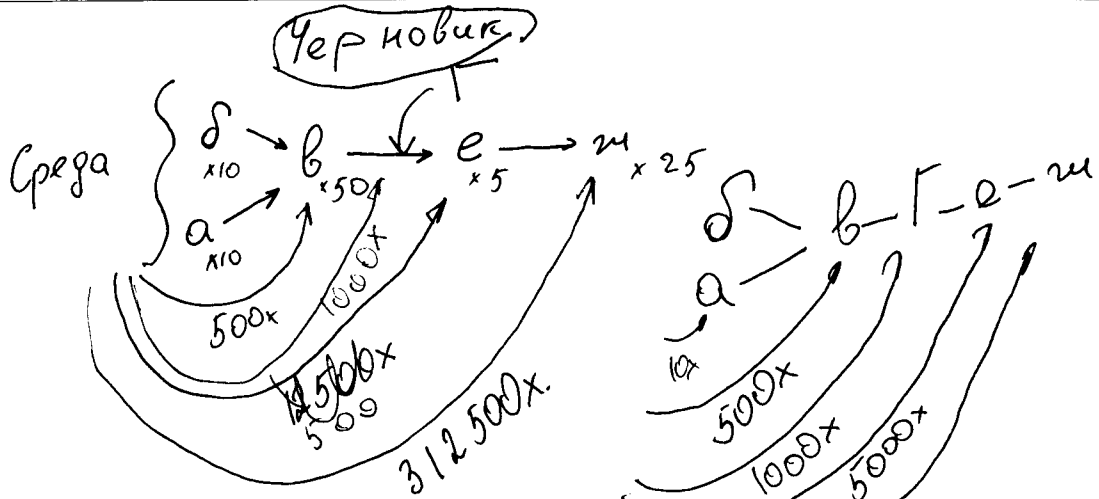 Черновик
Г
Среда
б → в → е → ж
×10 ×50 ×5 ×25
а
×10
500x
1000x
500
312500x.
б в – Г – е – ж
а
10x
500x
1000x
5000x